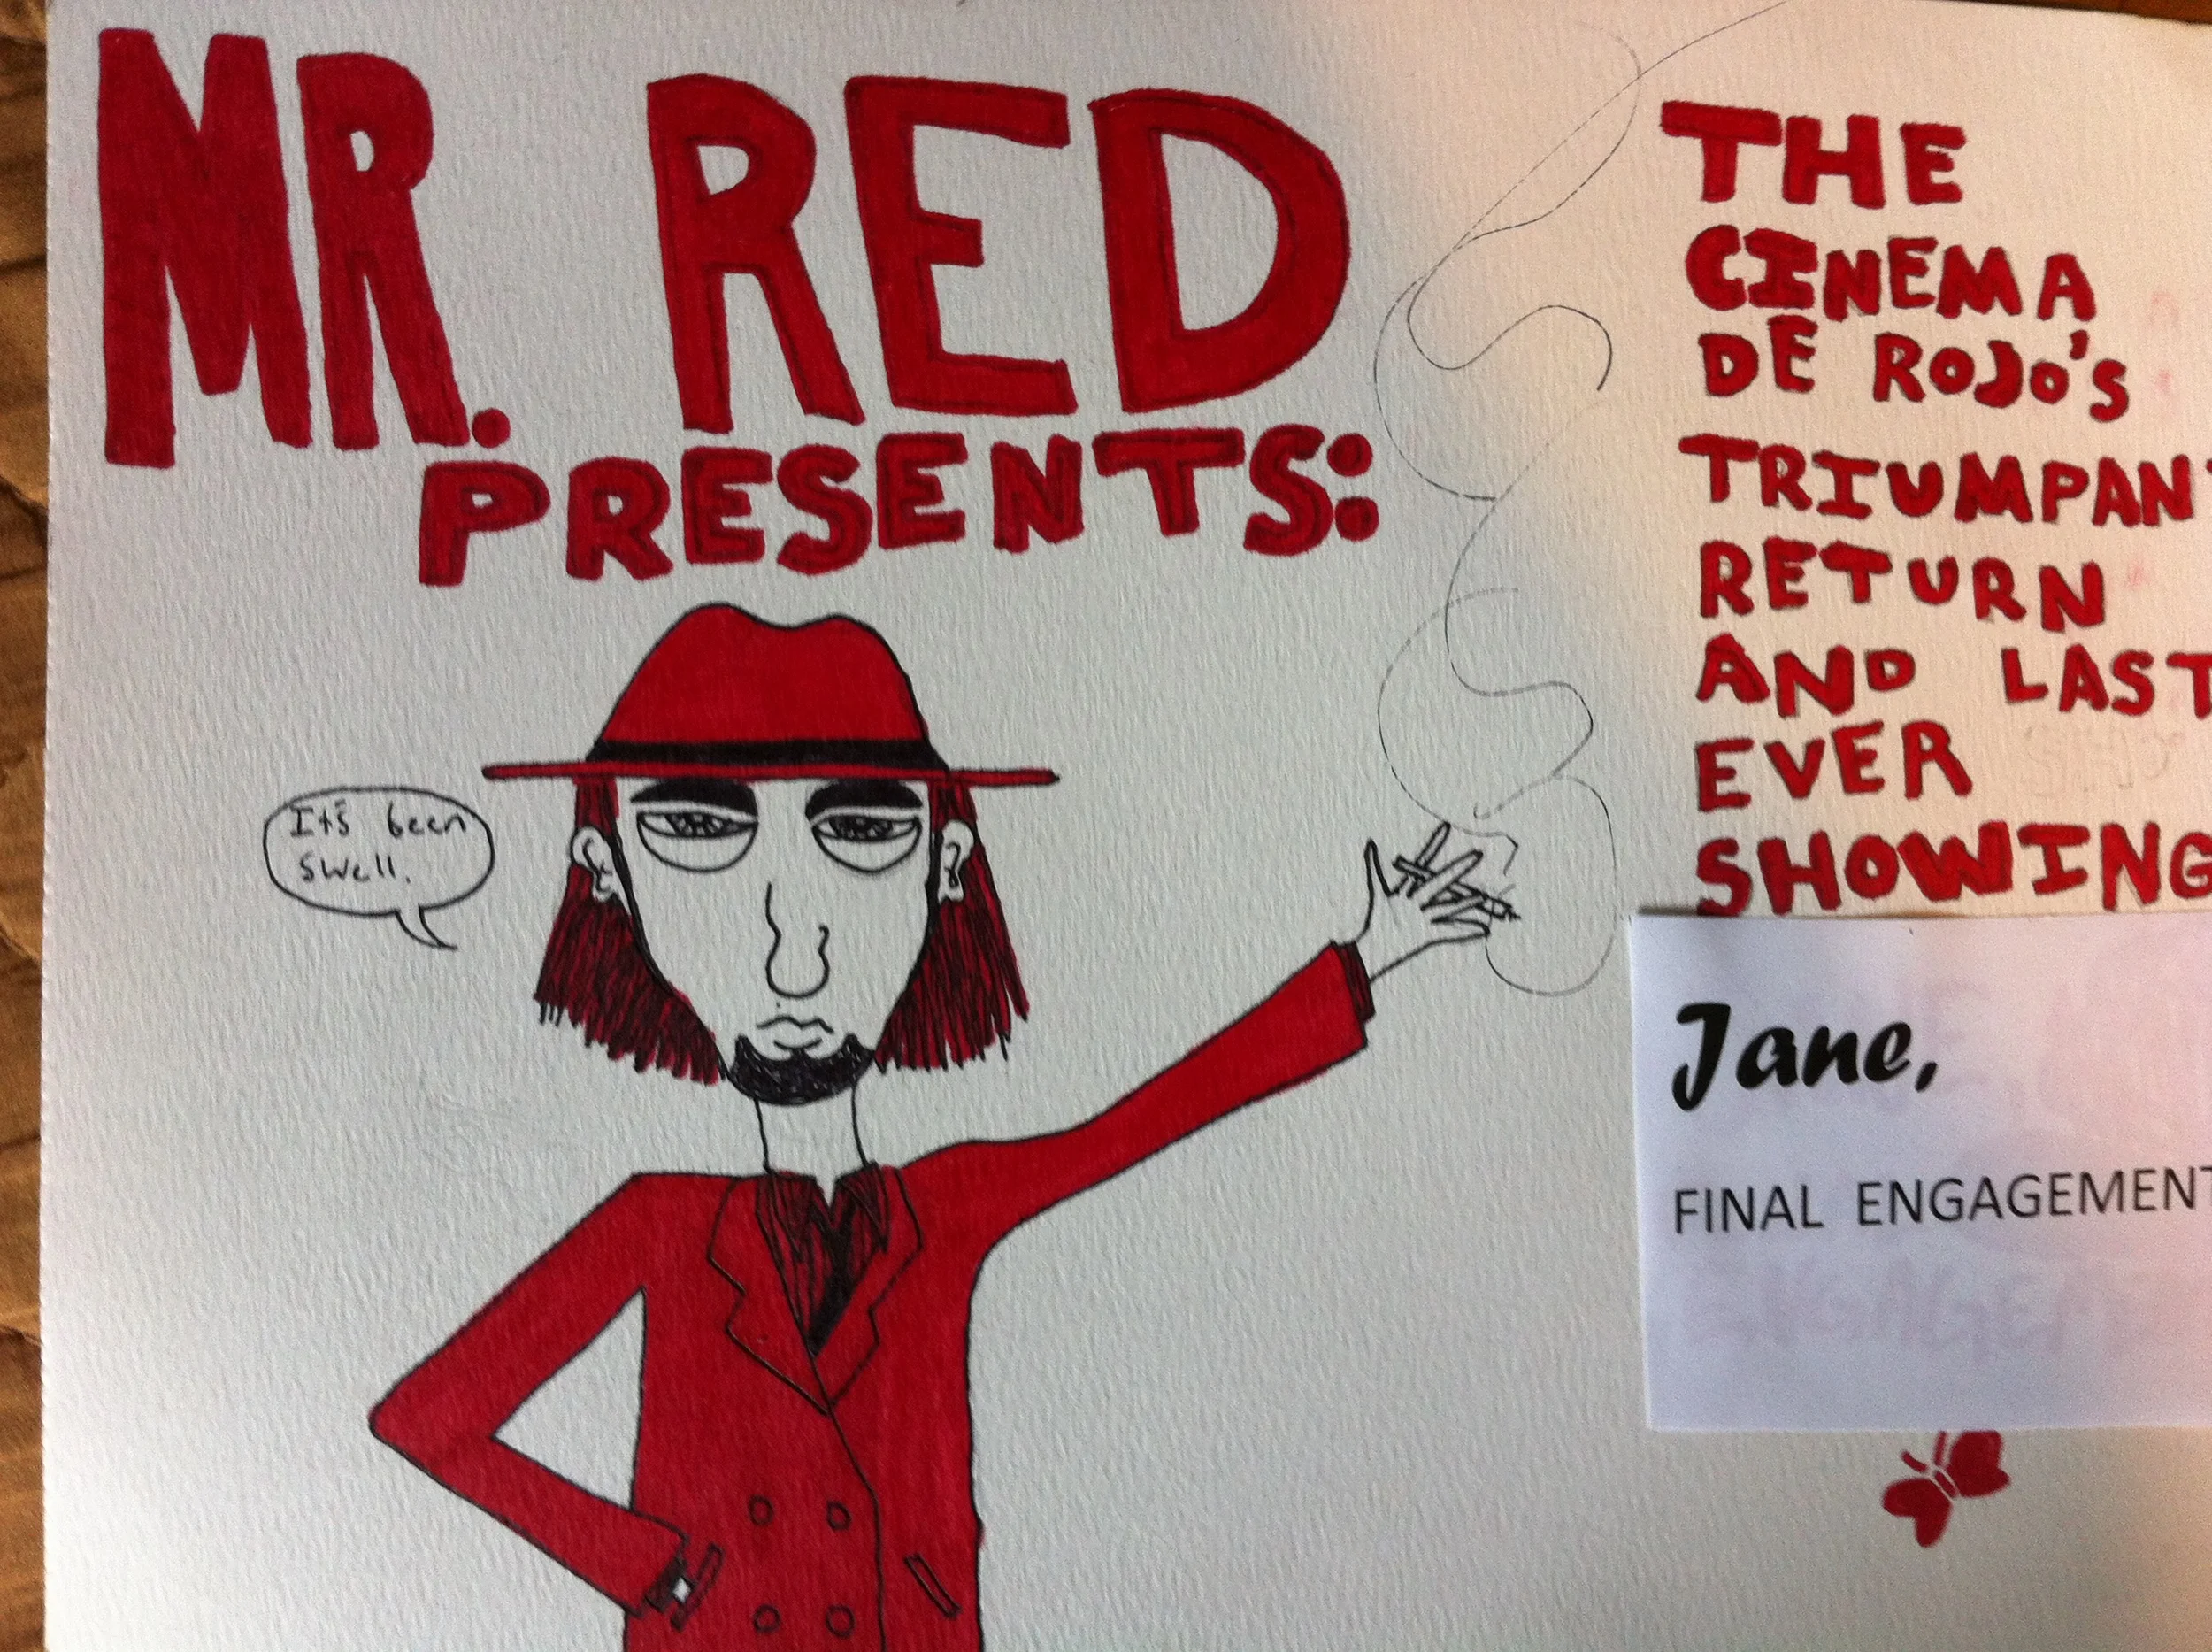 MR. RED
PRESENTS:
It's been
swell.
THE
CINEMA
DE ROJO'S
TRIUMPANT
RETURN
AND LAST
EVER
SHOWING
Jane,
FINAL ENGAGEMENT